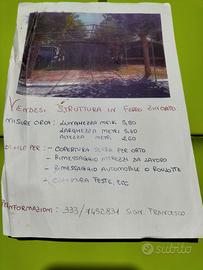 VENDESI STRUTTURA IN FERRO ZINCATO
MISURE CIRCA: LUNGHEZZA METRI 5,80
LARGHEZZA METRI 5,60
ALTEZZA METRI 2,60
UTILE PER: - COPERTURA SERRA PER ORTO
- RIMESSAGGIO ATTREZZI DA LAVORO
- RIMESSAGGIO AUTOMOBILE O ROULOTTE
- COPERTURA FESTE, ECC
INFORMAZIONI: 333/ SIGN. FRANCESCO
subito